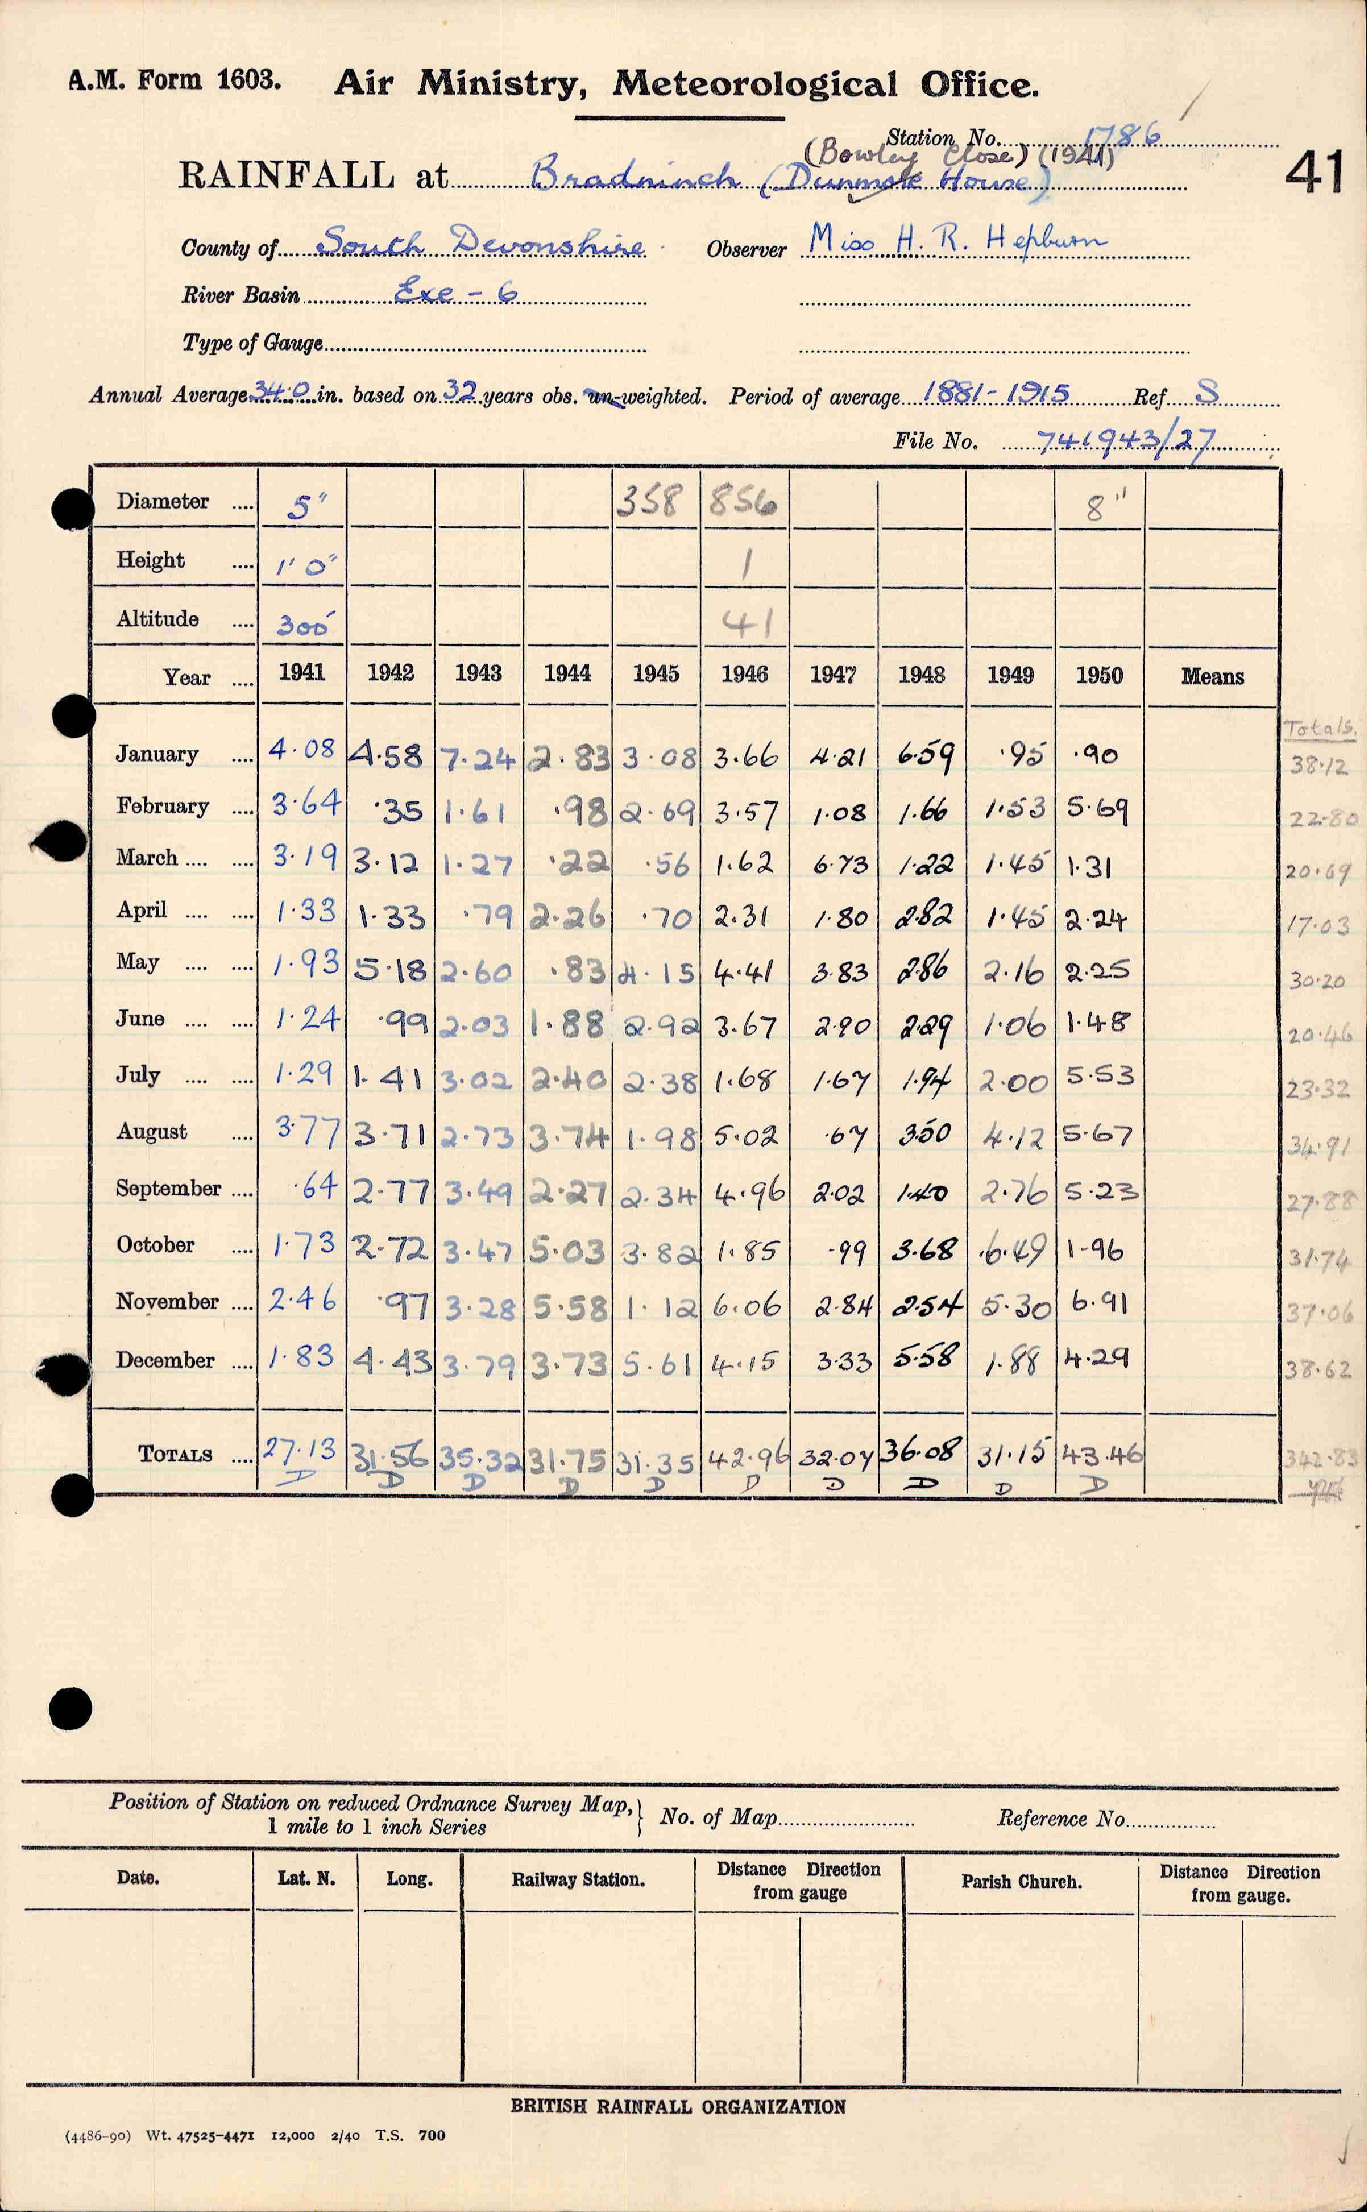 A.M. Form 1603. Air Ministry, Meteorological Office.
Station No. 1786
(Bowley Close) (1941)
RAINFALL at Bradninch (Dunmore House) 41
County of South Devonshire Observer Miss H. R. Hepburn
River Basin Exe - 6
Type of Gauge
Annual Average 34.0 in. based on 32 years obs. un-weighted. Period of average 1881-1915 Ref S
File No. 741943/27
Diameter .... 5" 358 856 8"
Height .... 1' 0" 1
Altitude .... 300' 41
Year .... 1941 1942 1943 1944 1945 1946 1947 1948 1949 1950 Means Totals.
January .... 4.08 4.58 7.24 2.83 3.08 3.66 4.21 6.59 .95 .90 38.12
February .... 3.64 .35 1.61 .98 2.69 3.57 1.08 1.66 1.53 5.69 22.80
March .... .... 3.19 3.12 1.27 .22 .56 1.62 6.73 1.22 1.45 1.31 20.69
April .... .... 1.33 1.33 .79 2.26 .70 2.31 1.80 2.82 1.45 2.24 17.03
May .... .... 1.93 5.18 2.60 .83 4.15 4.41 3.83 2.86 2.16 2.25 30.20
June .... .... 1.24 .99 2.03 1.88 2.92 3.67 2.90 2.29 1.06 1.48 20.46
July .... .... 1.29 1.41 3.02 2.40 2.38 1.68 1.67 1.94 2.00 5.53 23.32
August .... 3.77 3.71 2.73 3.74 1.98 5.02 .67 3.50 4.12 5.67 34.91
September .... .64 2.77 3.49 2.27 2.34 4.96 2.02 1.40 2.76 5.23 27.88
October .... 1.73 2.72 3.47 5.03 3.82 1.85 .99 3.68 6.49 1.96 31.74
November .... 2.46 .97 3.28 5.58 1.12 6.06 2.84 2.54 5.30 6.91 37.06
December .... 1.83 4.43 3.79 3.73 5.61 4.15 3.33 5.58 1.88 4.29 38.62
TOTALS .... 27.13 31.56 35.32 31.75 31.35 42.96 32.07 36.08 31.15 43.46 342.83
D D D D D D D D D D
Position of Station on reduced Ordnance Survey Map, } No. of Map Reference No.
1 mile to 1 inch Series
Date. Lat. N. Long. Railway Station. Distance Direction from gauge Parish Church. Distance Direction from gauge.
BRITISH RAINFALL ORGANIZATION
(4486-90) Wt. 47525-4471 12,000 2/40 T.S. 700